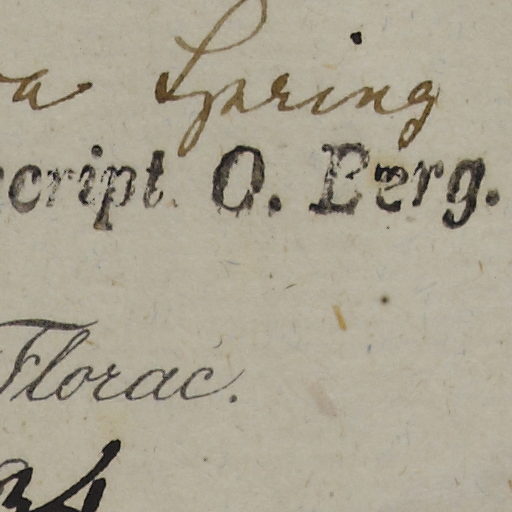 a Spring
cript O. Berg.
Florac.
34